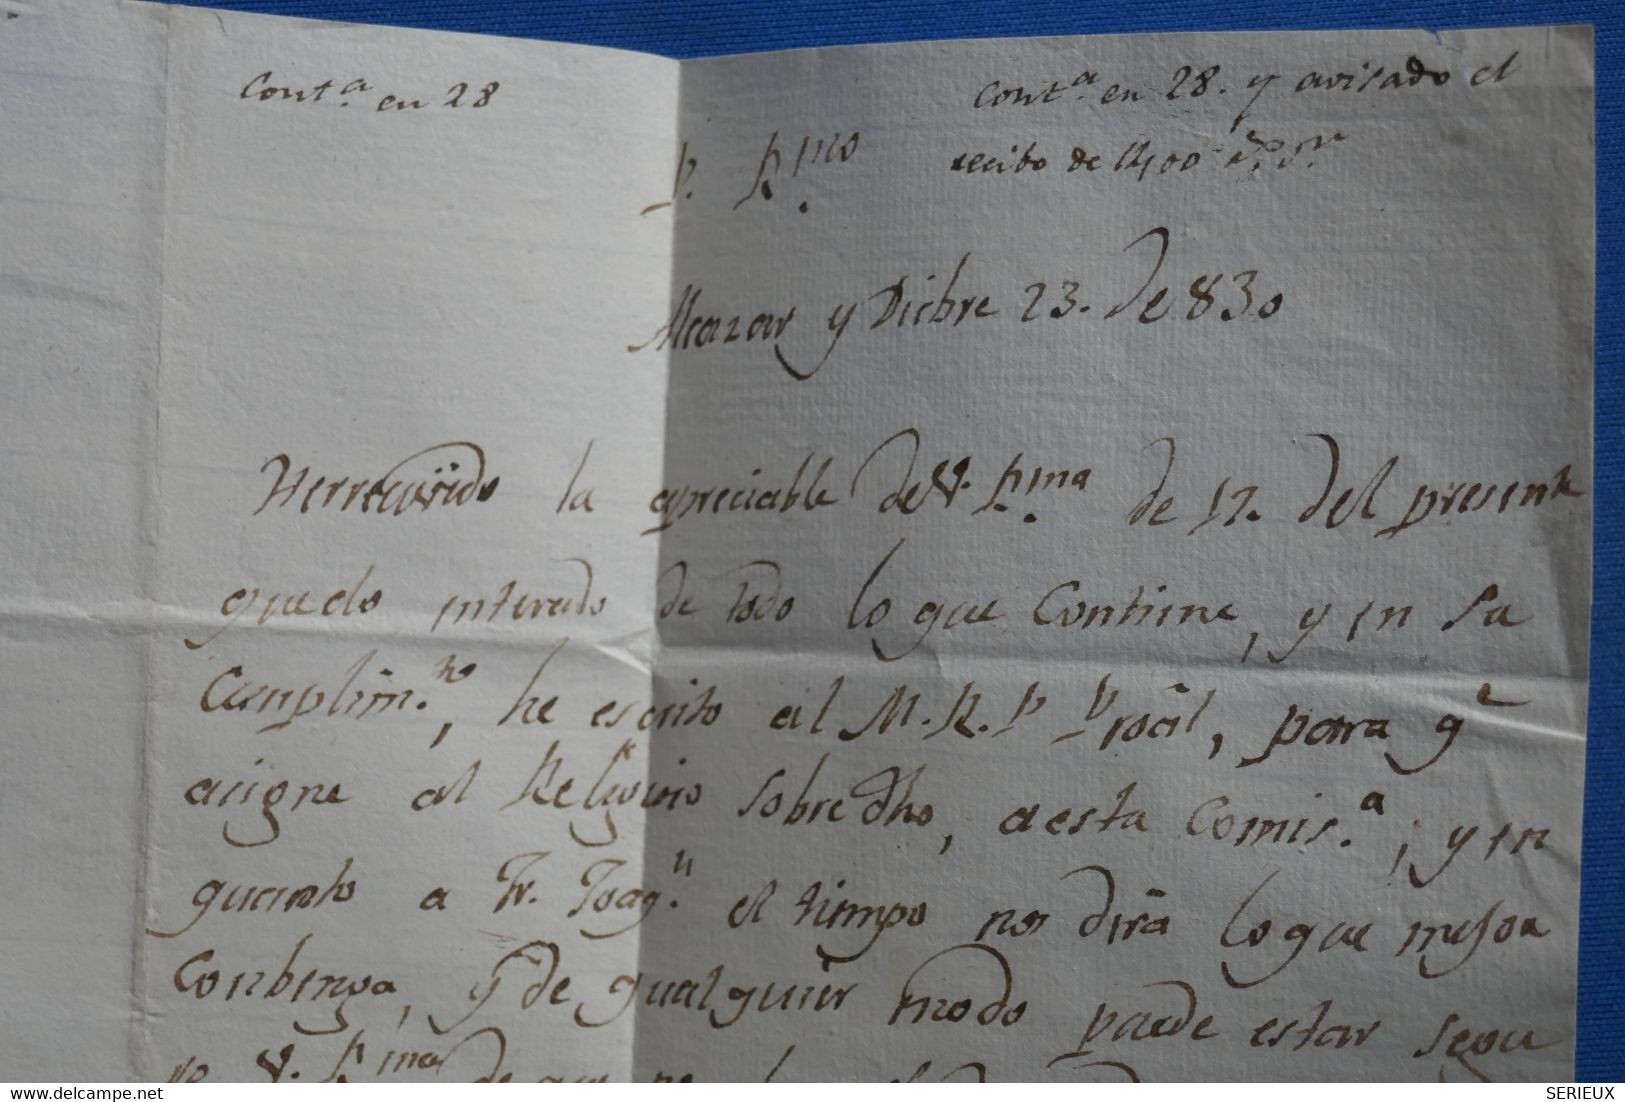 Cont.ª en 28
Cont.ª en 28. y avisado el
recibo de 1400
P. R.mo
Alcazar y Dicbre 23. de 830
He rrecivido la apreciable de V. R.ma de 17. del presente
quedo interado de todo lo que Contiene, y en su
Cunplim.to, he escrito al M. R. P. Proal, para q.e
asigne al Religioso sobredho, a esta Comis.ª; y en
quanto a Fr. Joaq.n el tiempo nos dirá lo que mejor
Conbenga, y de qualquier modo puede estar segu
ro V. R.ma de que
SERIEUX